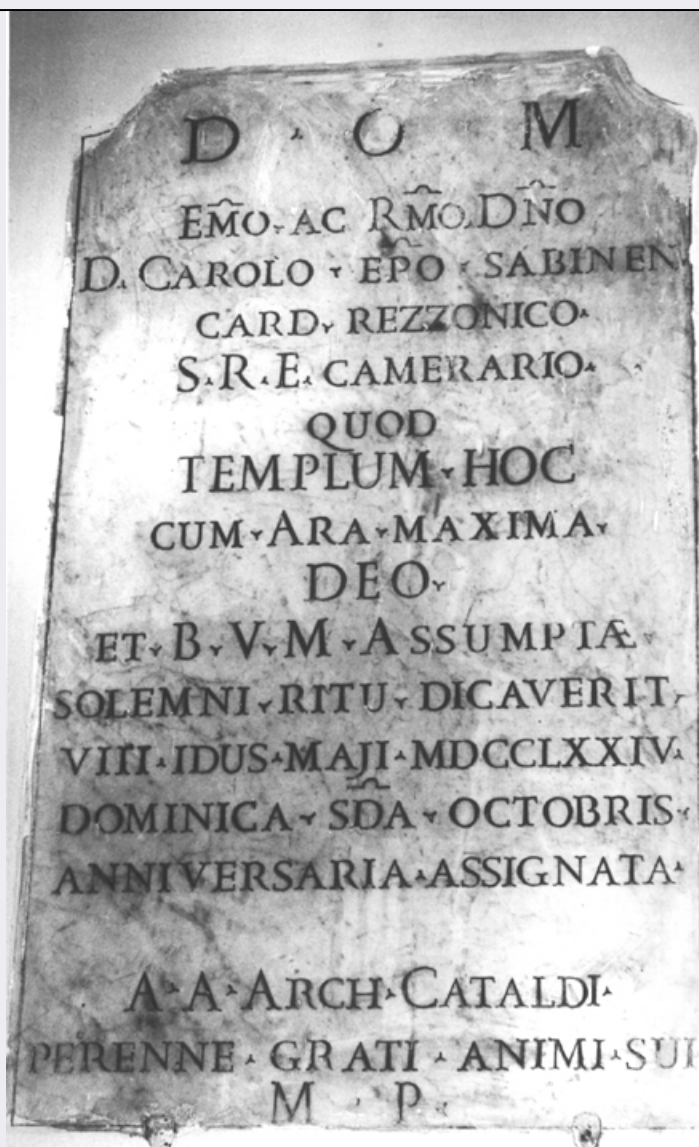 D · O M
EMO · AC RMO · DNO
D · CAROLO · EPO · SABINEN
CARD · REZZONICO ·
S · R · E · CAMERARIO ·
QUOD
TEMPLUM · HOC
CUM · ARA · MAXIMA ·
DEO ·
ET · B · V · M · ASSUMPTÆ ·
SOLEMNI · RITU · DICAVERIT ·
VIII · IDUS · MAJI · MDCCLXXIV ·
DOMINICA · SDA · OCTOBRIS ·
ANNIVERSARIA · ASSIGNATA ·
A · A · ARCH · CATALDI ·
PERENNE · GRATI · ANIMI · SUI
M · P ·